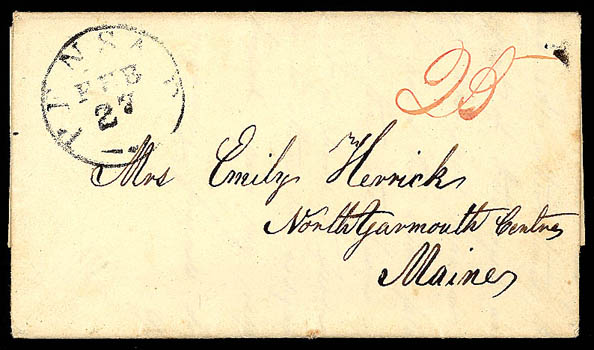 FEB
27
25
Mrs Emily Herrick
North Yarmouth Centre
Maine